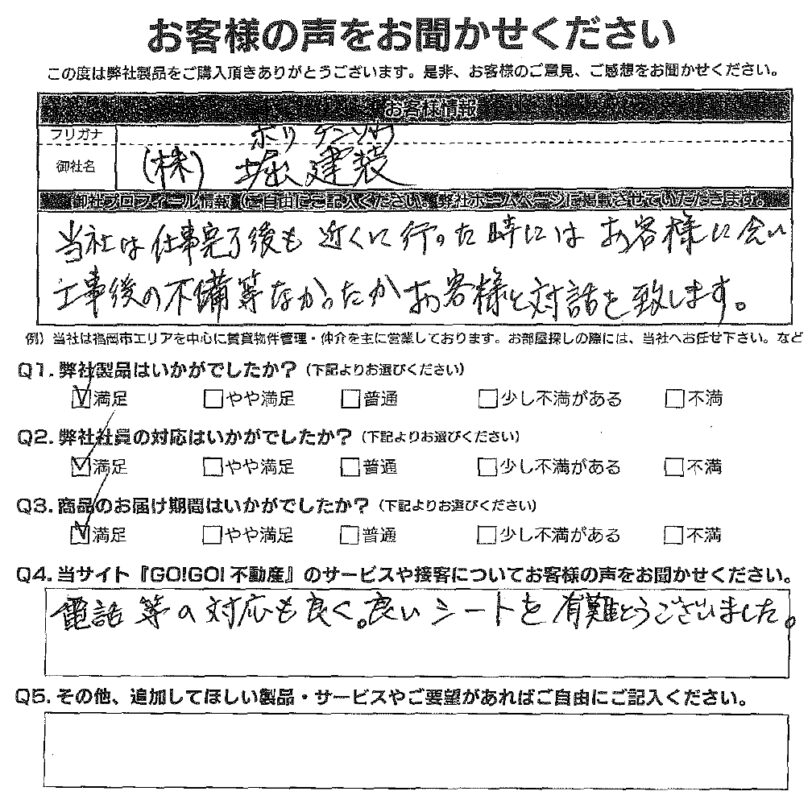 お客様の声をお聞かせください
この度は弊社製品をご購入頂きありがとうございます。是非、お客様のご意見、ご感想をお聞かせください。
お客様情報
フリガナ ホリ ケンソウ
御社名 (株) 堀建装
御社プロフィール情報(ご自由にご記入ください。弊社ホームページに掲載させていただきます。)
当社は仕事完了後も近くに行った時にはお客様に会い
工事後の不備等なかったかお客様と対話を致します。
例)当社は福岡市エリアを中心に賃貸物件管理・仲介を主に営業しております。お部屋探しの際には、当社へお任せ下さい。など
Q1.弊社製品はいかがでしたか?(下記よりお選びください)
満足 やや満足 普通 少し不満がある 不満
Q2.弊社社員の対応はいかがでしたか?(下記よりお選びください)
満足 やや満足 普通 少し不満がある 不満
Q3.商品のお届け期間はいかがでしたか?(下記よりお選びください)
満足 やや満足 普通 少し不満がある 不満
Q4.当サイト『GO!GO!不動産』のサービスや接客についてお客様の声をお聞かせください。
電話等の対応も良く。良いシートを有難とうございました。
Q5.その他、追加してほしい製品・サービスやご要望があればご自由にご記入ください。